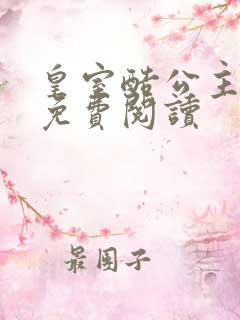 皇室酷公主
免費閱讀
最團子